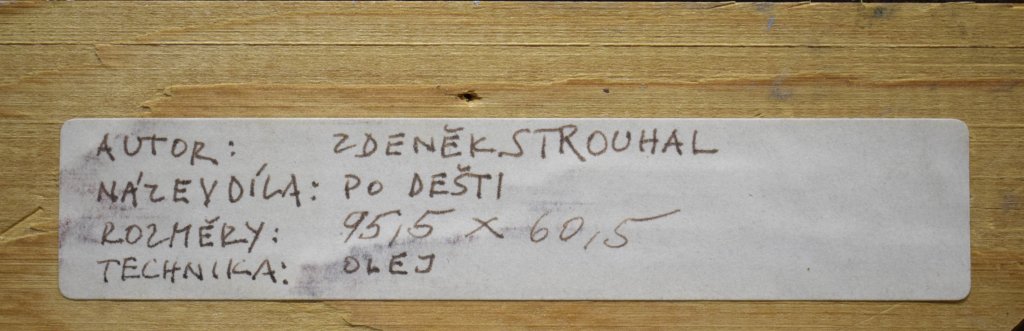 AUTOR: ZDENĚK STROUHAL
NÁZEV DÍLA: PO DEŠTI
ROZMĚRY: 95,5 x 60,5
TECHNIKA: OLEJ